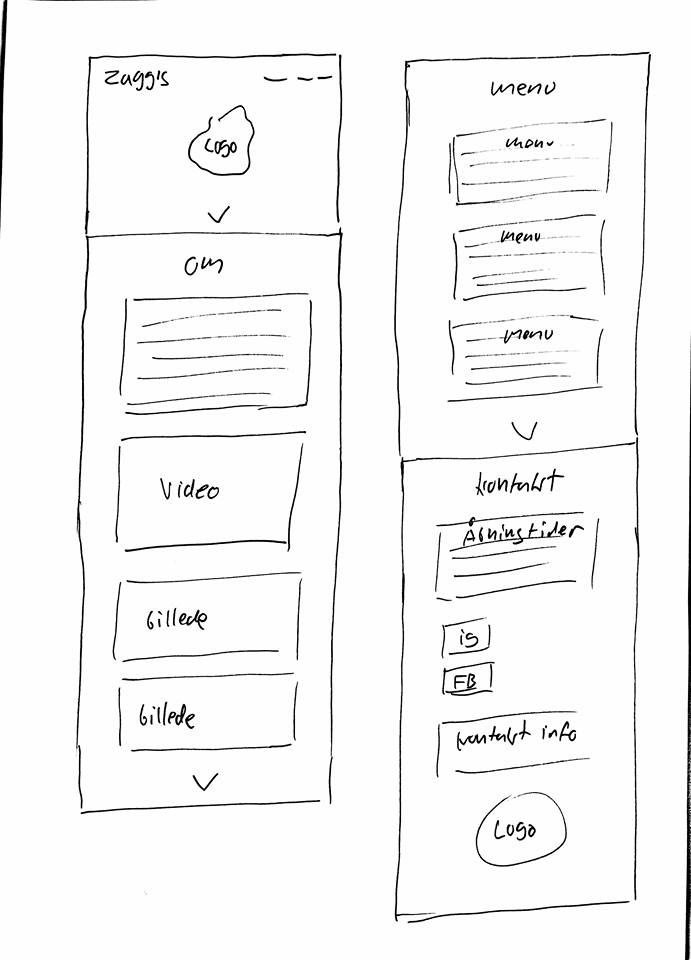 Zagg's
Logo
Om
Video
billede
billede
menu
menu
menu
menu
kontakt
Åbningtider
ig
FB
kontakt info
Logo